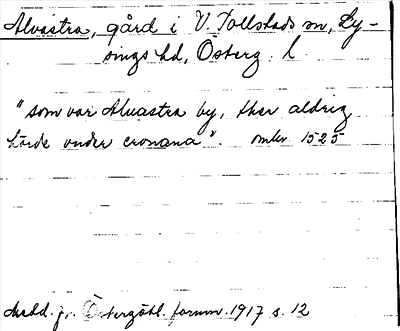 Alvastra, gård i V. Tollstads sn, Ly-
sings hd, Österg. l.
"som var Alvastra by, ther aldrig
hörde under cronana". omkr 1525
Medd. fr. Östergötl. fornm. 1917 s. 12